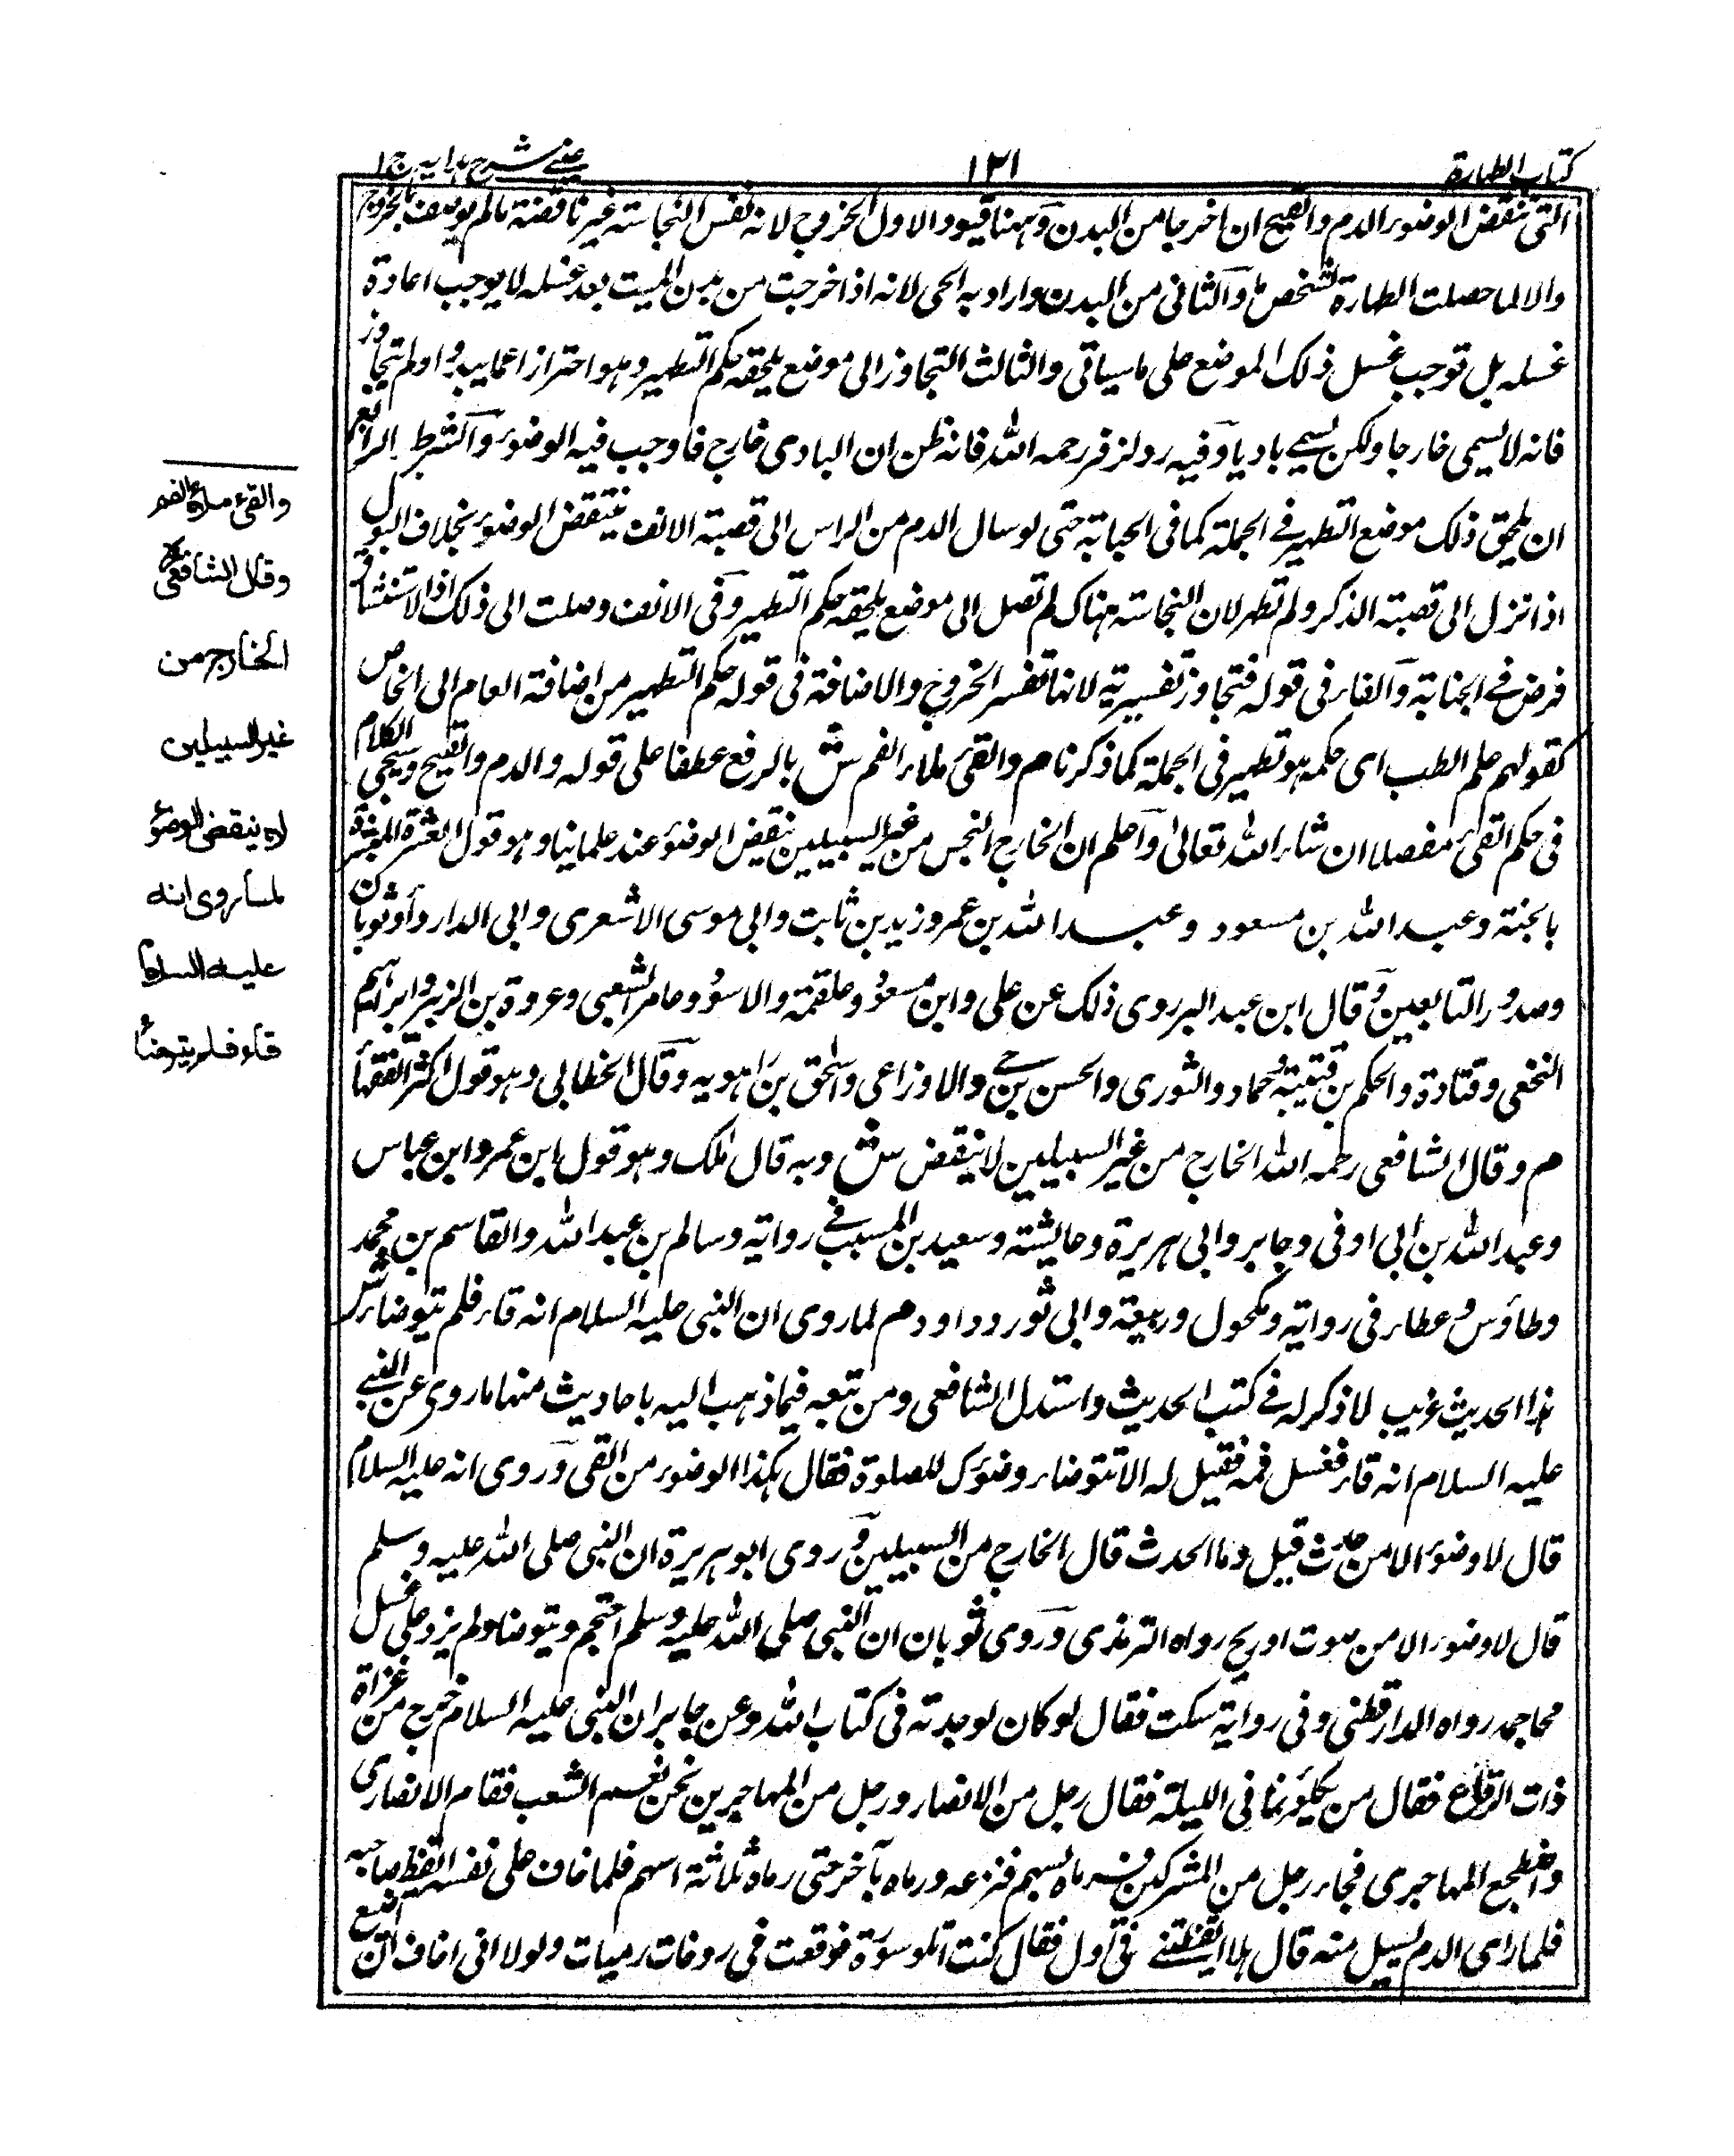 كتاب الطهارة
١٢١
عيني شرح هدايه ج ١
التى تنقض الوضوء الدم والقيح ان اخرجا من البدن وههنا قيود الاول الخروج لانه نفس النجاسته غير ناقضة مالم يوصف بالخروج
والالما حصلت الطهارة لشخص ما والثانى من البدن واراد به الحى لانه اذا خرجت من بدن الميت بعد غسله لا يوجب اعادة
غسله بل توجب غسل ذلك الموضع على ماسياتى والثالث التجاوز الى موضع يلحقه حكم التطهير وهو احتراز اعما يبدو او لم يتجاوز
فانه لايسمى خارجا ولكن يسمى باديا وفيه رد لزفر رحمه الله فانه ظن ان البادى خارج فاوجب فيه الوضوء والشرط الرابع
ان يلحق ذلك موضع التطهير فى الجملة كما فى الجنابة حتى لو سال الدم من الراس الى قصبته الانف ينتقض الوضوء بخلاف البول
اذا نزل الى قصبته الذكر ولم تظهر لان النجاسته هناك لم تصل الى موضع يلحقه حكم التطهير وفى الانف وصلت الى ذلك اذ الاستنشاق
فرض فى الجنابة والفاء فى قوله فتجاوز تفسيرية لانها تفسر الخروج والاضافة فى قوله حكم التطهير من اضافة العام الى الخاص
كقولهم علم الطب اى حكمه هو تطهير فى الجملة كما ذكرنا م والقىء ملاء الفم ش بالرفع عطفا على قوله والدم والقيح وسيجى الكلام
فى حكم القىء مفصلا ان شاء الله تعالى واعلم ان الخارج النجس من غير السبيلين ينقض الوضوء عند علمائنا وهو قول العشرة المبشرة
بالجنة وعبد الله بن مسعود وعبد الله بن عمر وزيد بن ثابت وابى موسى الاشعرى وابى الدرداء وثوبان
وصدور التابعين وقال ابن عبد البر روى ذلك عن على وابن مسعود وعلقمة والاسود وعامر الشعبى وعروة بن الزبير وابراهيم
النخعى وقتادة والحكم بن قتيبة وحماد والثورى والحسن بن حى والاوزاعى واسحق بن راهويه وقال الخطابى وهو قول اكثر الفقهاء
م وقال الشافعى رحمه الله الخارج من غير السبيلين لا ينقض ش وبه قال ملك وهو قول ابن عمر وابن عباس
وعبد الله بن ابى اوفى وجابر وابى هريرة وعايشة وسعيد بن المسيب فى رواية وسالم بن عبد الله والقاسم بن محمد
وطاؤس وعطاء فى رواية ومكحول وربيعة وابى ثور وداود م لما روى ان النبى عليه السلام انه قاء فلم يتوضاء ش
هذا الحديث غريب لا ذكر له فى كتب الحديث واستدل الشافعى ومن تبعه فيما ذهب اليه باحاديث منها ماروى عن النبى
عليه السلام انه قاء فغسل فمه فقيل له الا تتوضاء وضوءك للصلوة فقال هكذا الوضوء من القى وروى انه عليه السلام
قال لا وضوء الا من حدث قيل وما الحدث قال الخارج من السبيلين وروى ابو هريرة ان النبى صلى الله عليه وسلم
قال لا وضوء الا من صوت او ريح رواه الترمذى وروى ثوبان ان النبى صلى الله عليه وسلم احتجم ويتوضا ولم يزد على غسل
محاجمه رواه الدارقطنى وفى رواية سكت فقال لو كان لوجدته فى كتاب الله وعن جابر ان النبى عليه السلام خرج من غزاة
ذات الرقاع فقال من يكلؤنا فى الليلة فقال رجل من الانصار ورجل من المهاجرين نحن الشعب فقام الانصارى
واضطجع المهاجرى فجاء رجل من المشركين فرماه بسهم فنزعه ورماه بآخر حتى رماه ثلاثة اسهم فلما خاف على نفسه ايقظ صاحبه
فلما راى الدم يسيل منه قال هلا ايقظتنى فى اول فقال كنت اتلو سورة فوقعت فى رميات ولولا انى اخاف ان اضيع
والقئ ملأ الفم
وقال الشافعي
الخارج من
غير السبيلين
لا ينقض الوضوء
لما روى انه
عليه السلام
قاء فلم يتوضأ